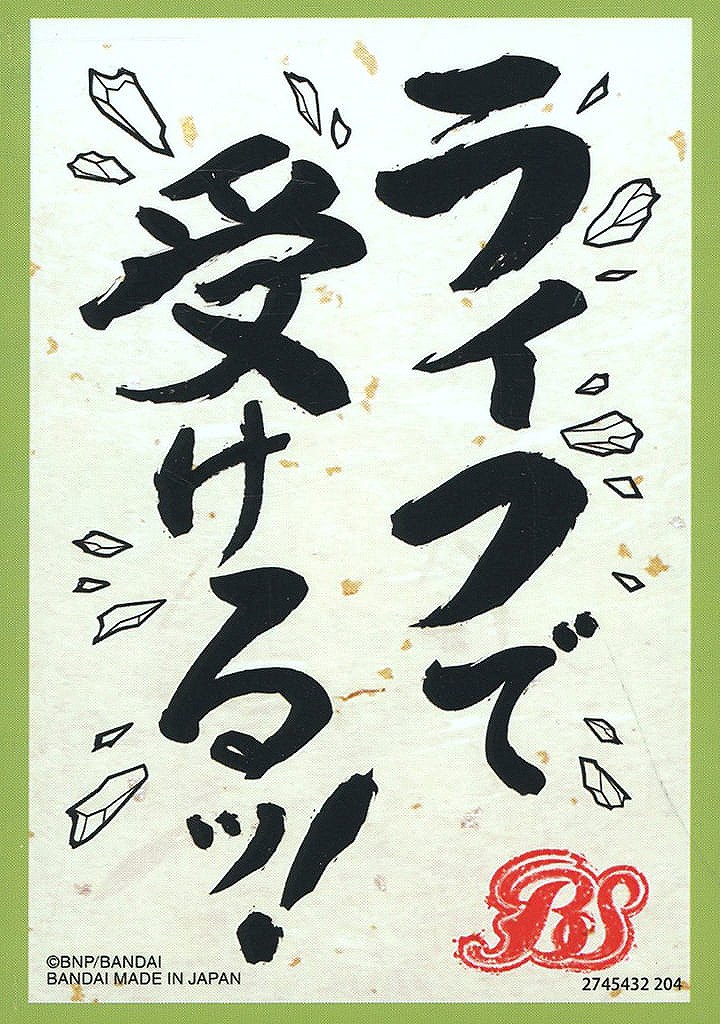 ライフで
受けるッ!
BS
©BNP/BANDAI
BANDAI MADE IN JAPAN
2745432 204